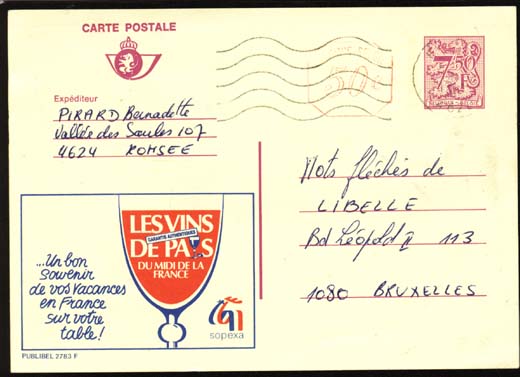 CARTE POSTALE
Expéditeur
PIRARD Bernadette
Vallée des Saules 107
4624 ROMSEE
7,50
F
BELGIQUE - BELGIË
50
Mots fléchés de
LIBELLE
Bd Léopold II 113
1080 BRUXELLES
LES VINS
GARANTIS AUTHENTIQUES
DE PAYS
DU MIDI DE LA
FRANCE
...Un bon
souvenir
de vos vacances
en France
sur votre
table!
sopexa
PUBLIBEL 2783 F